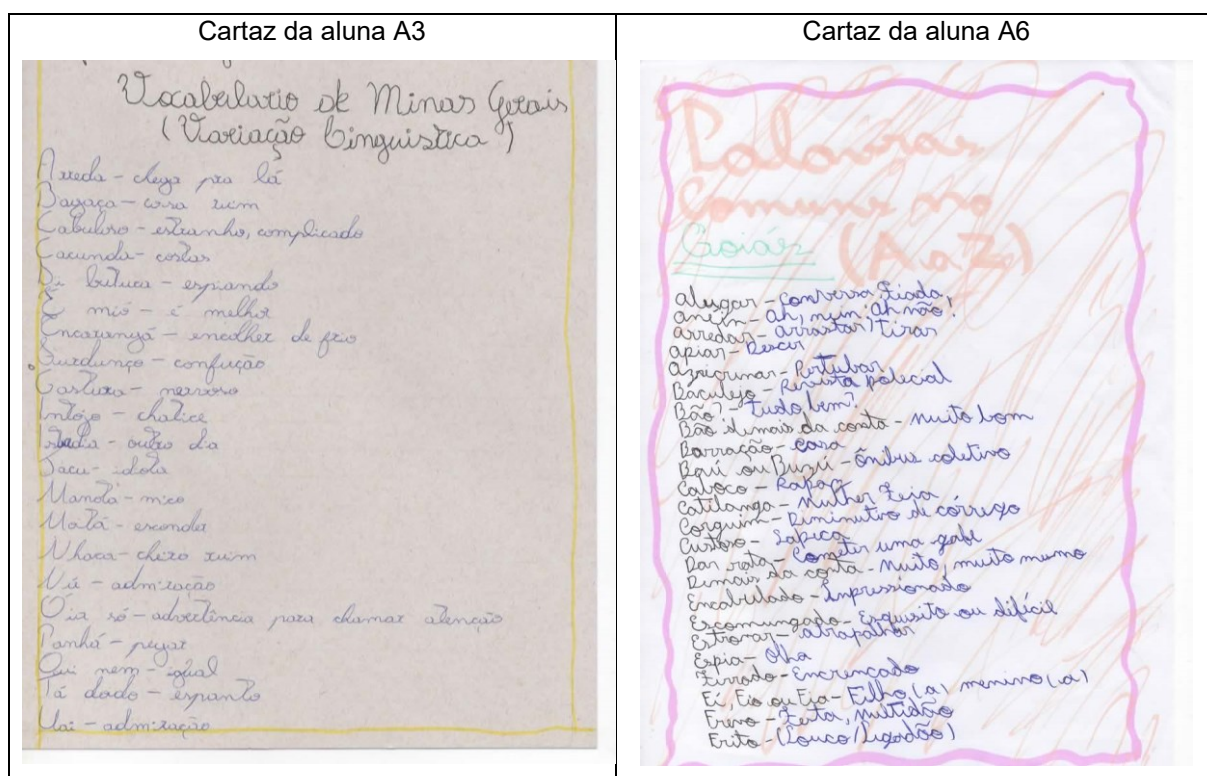 Cartaz da aluna A3
Vocabulario de Minas Gerais
(Variação Linguistica)
Arreda - chega pra lá
Bagaça - coisa ruim
Cabuloso - estranho, complicado
Cacunda - costas
Di butuca - espiando
É mió - é melhor
Encarangá - encolher de frio
Furdunço - confução
Gastura - nervoso
Intojo - chatice
Istudia - outro dia
Jacu - idota
Mandá - mico
Matá - esconder
Nhaca - chero ruim
Nú - admiração
Óia só - advertência para chamar atenção
Panhá - pegar
Qui nem - igual
Tá dodo - espanto
Uai - admiração
Cartaz da aluna A6
Palavras
Comuns no
Goiás (A a Z)
alugar - Conversa fiada
anein - ah, nein! ah não!
arredar - arrastar/tirar
apiar - Descer
azucrinar - Pertubar
Baculejo - Revista polecial
Bão? - Tudo bem?
Bão demais da conta - Muito bom
Barração - casa
Baú ou Buzú - ônibus coletivo
Caboco - Rapaz
Catilanga - Mulher feia
Corguim - Diminutivo de córrego
Custoso - Sapeca
Dar rata - Cometer uma gafe
Demais da conta - Muito, muito mesmo
Encabulado - Impressionado
Escomungado - Esquisito ou difícil
Estrovar - atrapalhar
Espia - Olha
Ferrado - Encrencado
Fi, Fio ou Fia - Filho(a) menino(a)
Frevo - Festa, Multidão
Frito - (Louco/ligadão)